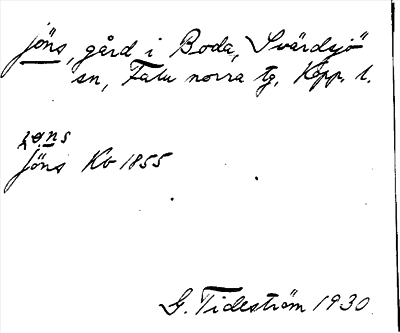 jöns, gård i Boda, Svärdsjö
sn, Falu norra tg, Kopp. l.
jöns Kb 1855
G. Tideström 1930